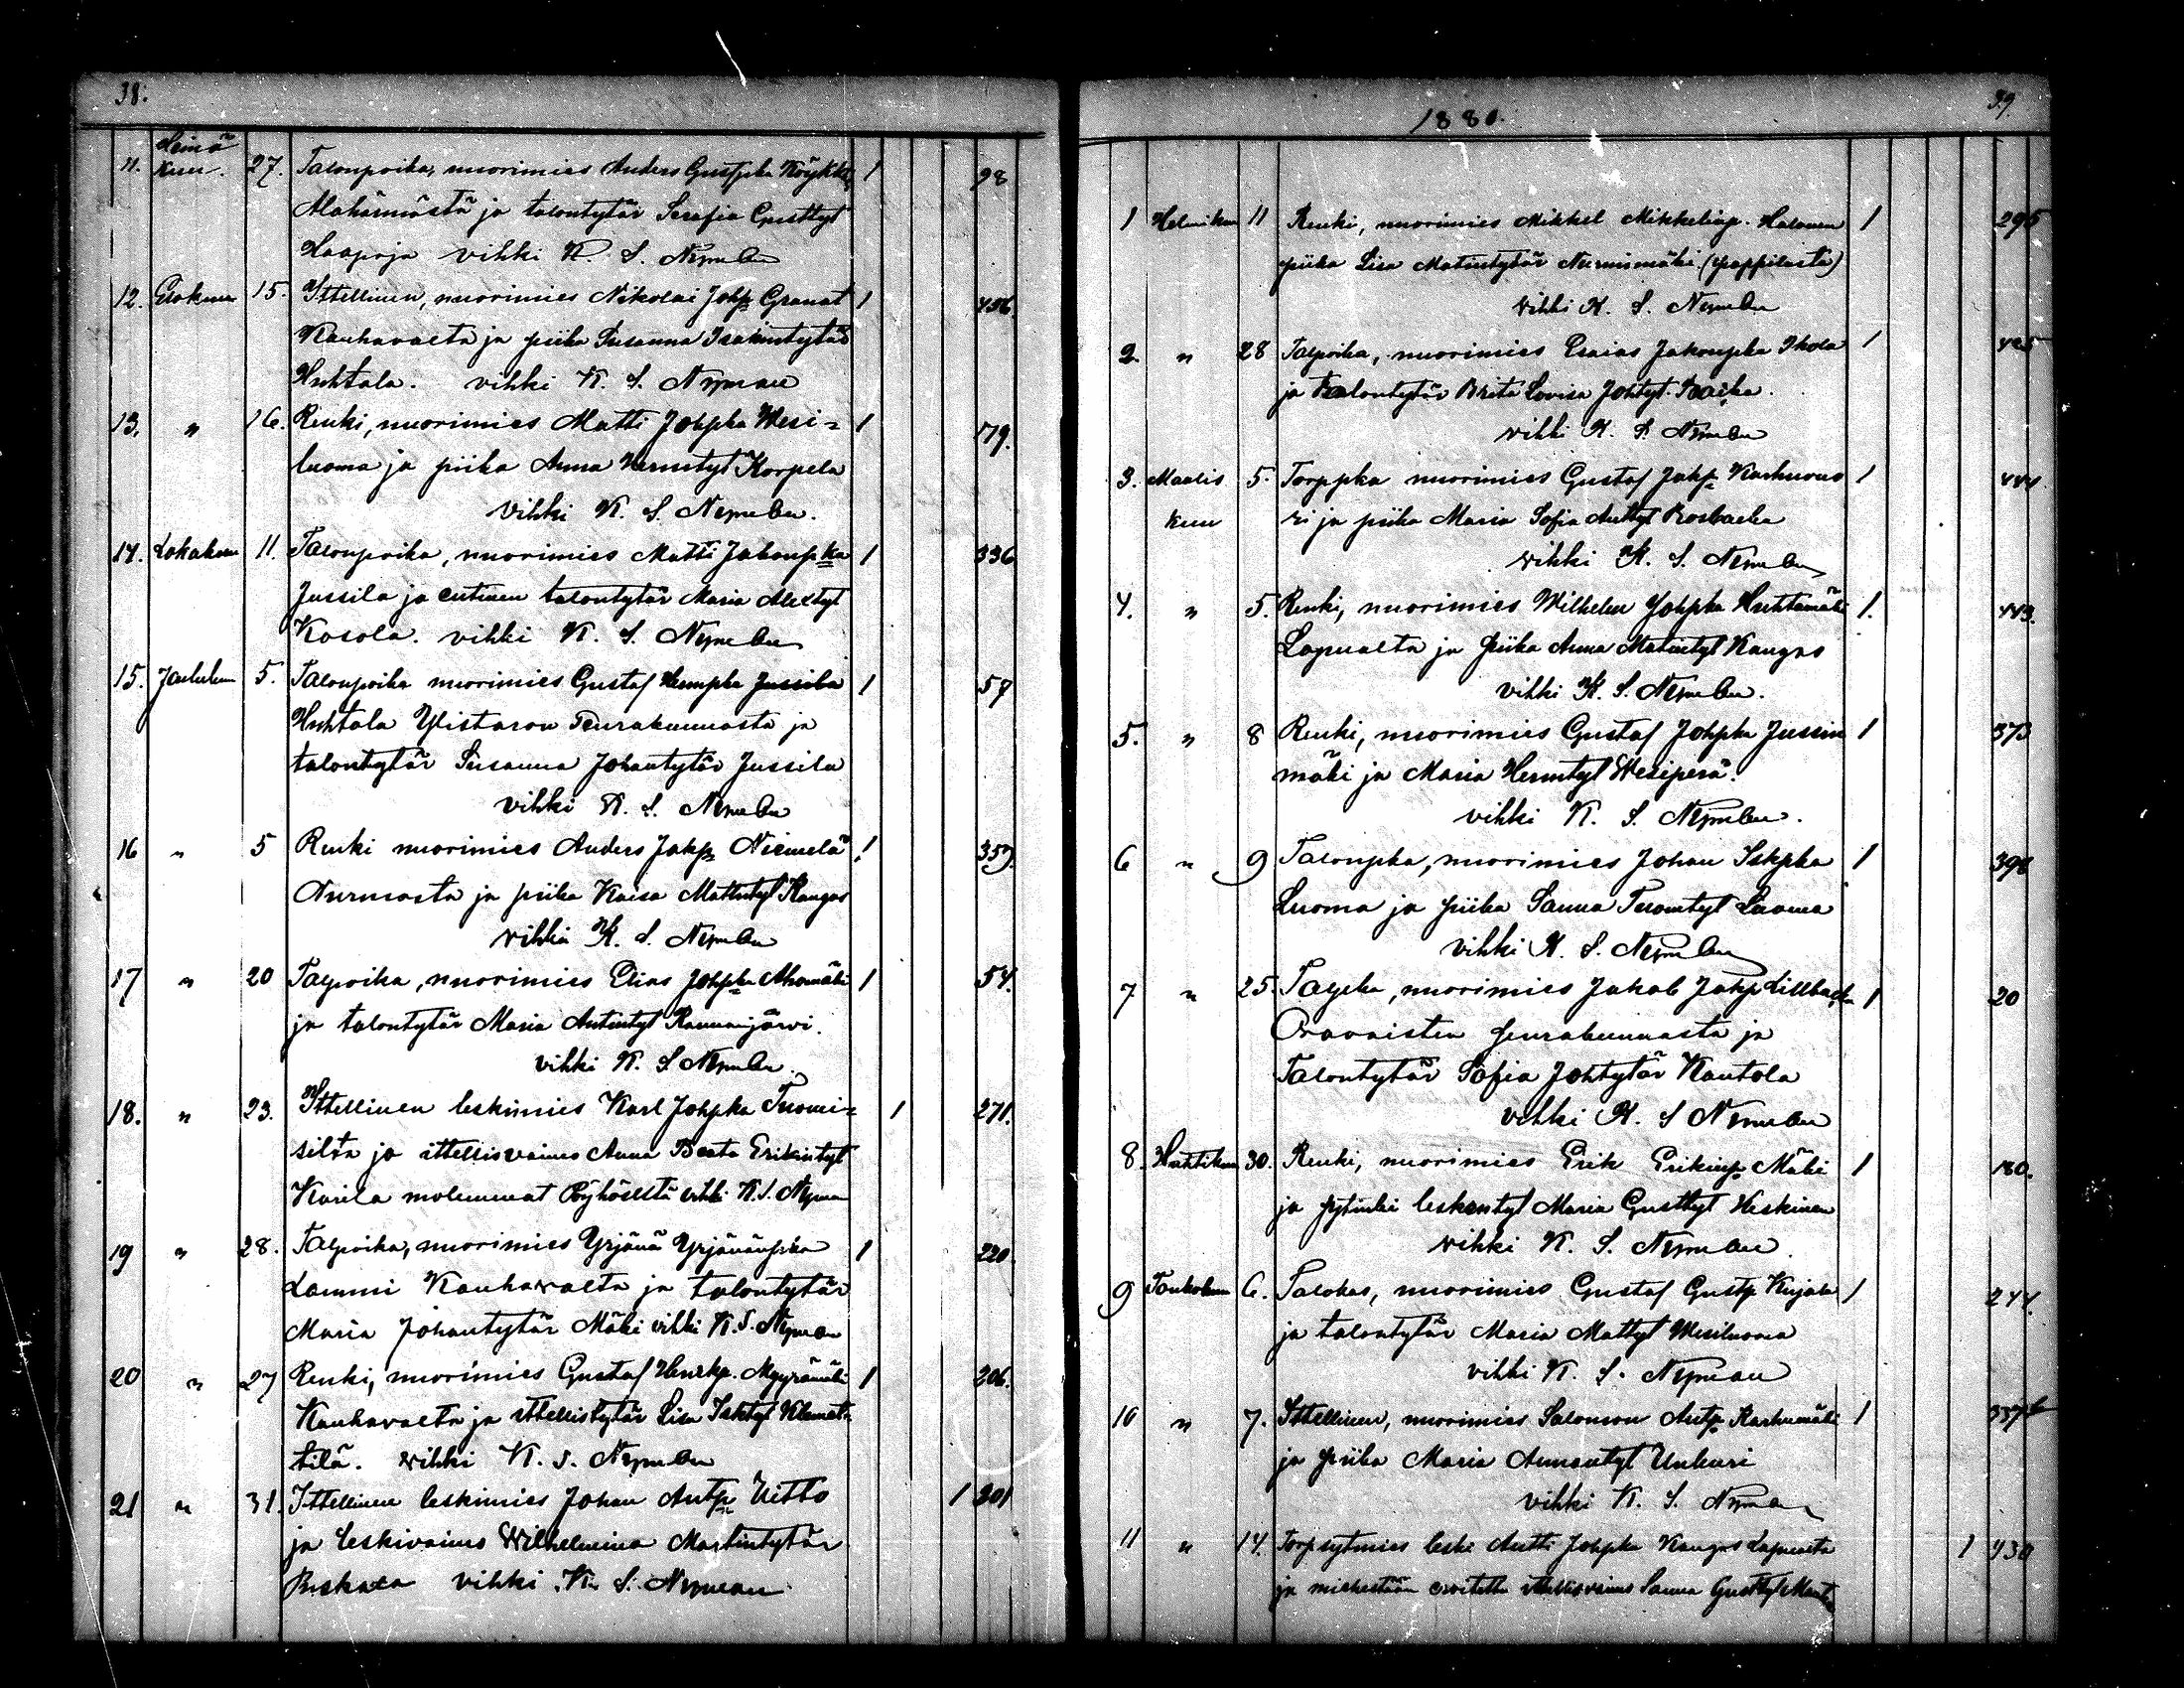 38.
Heinä
11. kuu. 27. Talonpoika, nuorimies Anders Gustpka Köykkä 1 98
Alahärmästä ja talontytär Serafia Gusttyt
Haapoja vihki K. S. Nyman
12. Elokuu 15. Ittellinen, nuorimies Nikolai Johp Granat 1 456
Kauhavalta ja piika Susanna Isakintytär
Huhtala. vihki K. S. Nyman
13. " 16. Renki, nuorimies Matti Johpka Wesi= 1 79.
luoma ja piika Anna Hermtyt Korpela
vihki K. S. Nyman.
14. Lokakuu 11. Talonpoika, nuorimies Matti Jakoupka 1 336
Jussila ja entinen talontytär Maria Alextyt
Kosola. vihki K. S. Nyman
15. Joulukuu 5. Talonpoika nuorimies Gustaf Jussila 1 57
Huhtala Ylistaron Seurakunnasta ja
talontytär Susanna Johantytär Jussila
vihki K. S. Nyman
16 " 5 Renki nuorimies Anders Jakp Niemelä 1 359.
Nurmosta ja piika Kaisa Mattintyt Kangas
vihki K. S. Nyman
17 " 20 Talpoika, nuorimies Elias Johpka Ahomäki 1 54.
ja talontytär Maria Antintyt Rannanjärvi.
vihki K. S. Nyman.
18. " 23. Ittellinen leskimies Karl Johpka Tuomi= 1 271.
silta ja ittellisvaimo Anna Beata Erikintyt
Karila molemmat vihki K. S. Nyman
19 " 28. Talpoika, nuorimies Yrjänä Yrjänänpoika 1 220.
Lammi Kauhavalta ja talontytär
Maria Johantytär Mäki vihki K. S. Nyman
20 " 27 Renki, nuorimies Gustaf Henrkp. Myyrämäki 1 206.
Kauhavalta ja ittellistytär Lisa Isktyt Klemet
tilä. vihki K. S. Nyman
21 " 31. Ittellinen leskimies Johan Antp Uitto 1 301
ja leskivaimo Wilhelmina Martintytär
Puskala vihki K. S. Nyman.
39.
1880.
1 Helmikuu 11 Renki, nuorimies Mikkel Mikkelinp. Halonen 1 295
piika Lisa Matintytär Nurmimäki (pappilasta)
vihki K. S. Nyman
2. " 28 Talpoika, nuorimies Esaias Jakoupka Ikola 1 425
ja Talontytär Brita Lovisa Johtyt.
vihki K. S. Nyman
3. Maalis 5. Torppka nuorimies Gustaf Jakp Karhuvuo 1 444
kuu ri ja piika Maria Sofia Anttyt Rosbacka
vihki K. S. Nyman
4. " 5. Renki, nuorimies Wilhelm Johpka Huhtamäki 1. 443.
Lapualta ja piika Anna Matintyt Kangas
vihki K. S. Nyman.
5. " 8 Renki, nuorimies Gustaf Johpka Jussin 1 373
mäki ja Maria Hermtyt Wesiperä.
vihki K. S. Nyman.
6 " 9 Talonpka, nuorimies Johan Iskpka 1 398
Luoma ja piika Sanna Tuomtyt Luoma
vihki K. S. Nyman
7 " 25. Talpka, nuorimies Jakob Jakp Lillbacka 1 20
Oravaisten seurakunnasta ja
Talontytär Sofia Johtytär Kautola
vihki K. S Nyman
8. Huhtikuu 30. Renki, nuorimies Erik Erikinp Mäki 1 180.
ja leskentyt Maria Gusttyt Keskinen
vihki K. S. Nyman.
9 Toukokuu 6. Talokas, nuorimies Gustaf Gustp Kujala 1 244.
ja talontytär Maria Mattyt Wesiluoma
vihki K. S. Nyman
10 " 7. Ittellinen, nuorimies Salomon Antp Karhumäki 1 337
ja piika Maria Annantyt Unkuri
vihki K. S. Nyman
11 " 14. leski Antti Johpka Kangas Lapualta 1 430
ja miehestään eroitettu ittellisvaimo Sanna Gusttyt